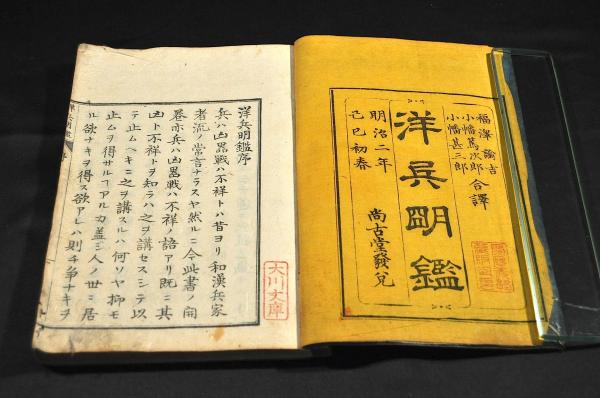 福澤諭吉
小幡篤次郎 合譯
小幡甚三郎
洋兵明鑑
明治二年
己巳初春
尚古堂發兌
洋兵明鑑序
兵ハ凶器戰ハ不祥トハ昔ヨリ和漢兵家
者流ノ常言ナラスヤ然ルニ今此書ノ開
卷亦兵ハ凶器戰ハ不祥ノ語アリ既ニ其
凶ト不祥トヲ知ラハ之ヲ講セスシテ以
テ止ムヘキニ之ヲ講スルハ何ソヤ抑モ
止ムヲ得サルヿアルカ蓋シ人ノ世ニ居
ル欲ナキヲ得ス欲アレハ則チ爭ナキヲ
大川文庫